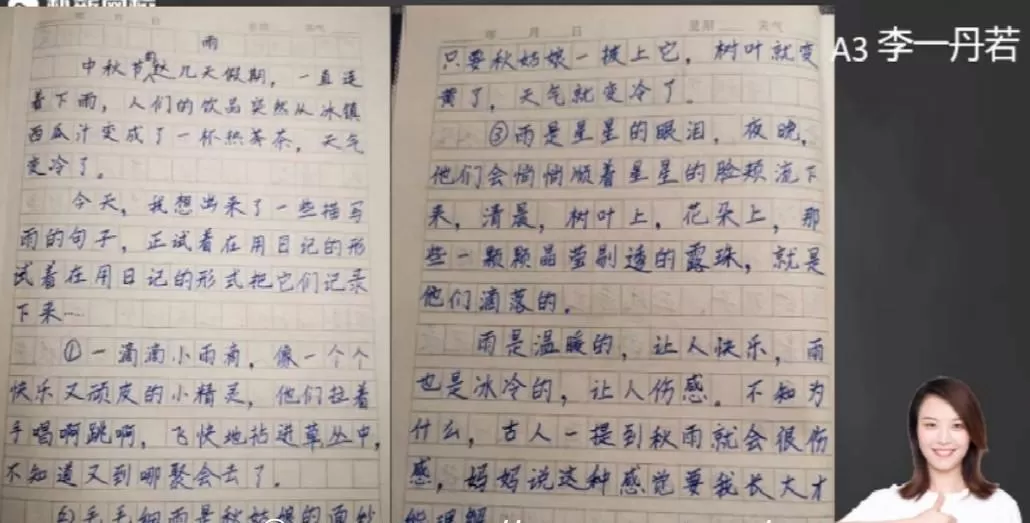 雨
中秋节的这几天假期，一直连
着下雨，人们的饮品突然从冰镇
西瓜汁变成了一杯热荞茶，天气
变冷了。
今天，我想出来了一些描写
雨的句子，正试着在用日记的形
试着在用日记的形式把它们记录
下来…
①一滴滴小雨滴，像一个个
快乐又顽皮的小精灵，他们拉着
手唱啊跳啊，飞快地钻进草丛中，
不知道又到哪聚会去了。
②毛毛细雨是秋姑娘的面纱
年 月 日 星期 天气
只要秋姑娘一披上它，树叶就变
黄了，天气就变冷了。
③雨是星星的眼泪，夜晚，
他们会悄悄顺着星星的脸颊流下
来，清晨，树叶上，花朵上，那
些一颗颗晶莹剔透的露珠，就是
他们滴落的。
雨是温暖的，让人快乐，雨
也是冰冷的，让人伤感。不知为
什么，古人一提到秋雨就会很伤
感，妈妈说这种感觉要我长大才
能理解
A3 李一丹若